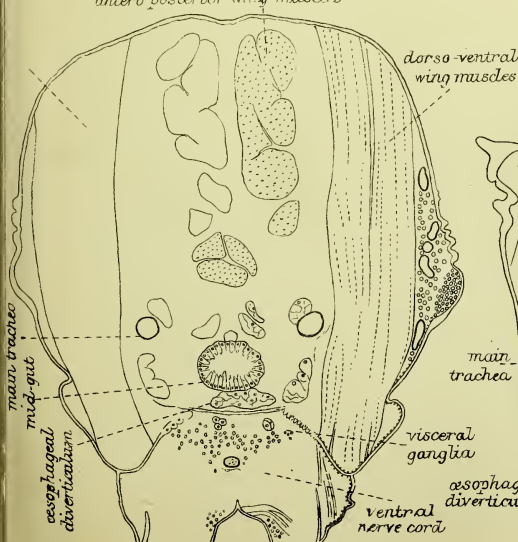 antero posterior wing muscles
dorso-ventral
wing muscles
main trachea
mid-gut
œsophageal
diverticulum
main
trachea
visceral
ganglia
œsophag
diverticu
ventral
nerve cord